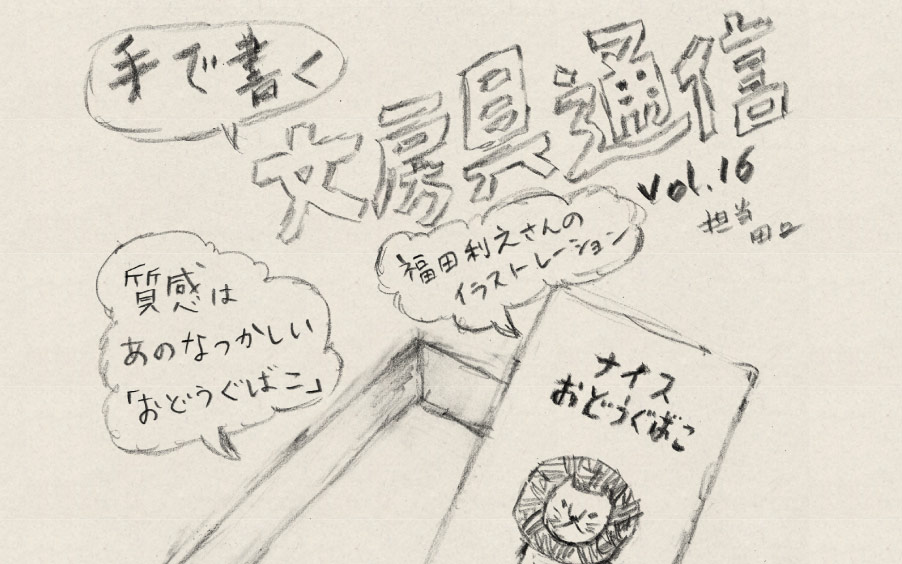 手で書く
文房具通信
vol.16
担当
田口
福田利之さんの
イラストレーション
質感は
あのなつかしい
「おどうぐばこ」
ナイス
おどうぐばこ